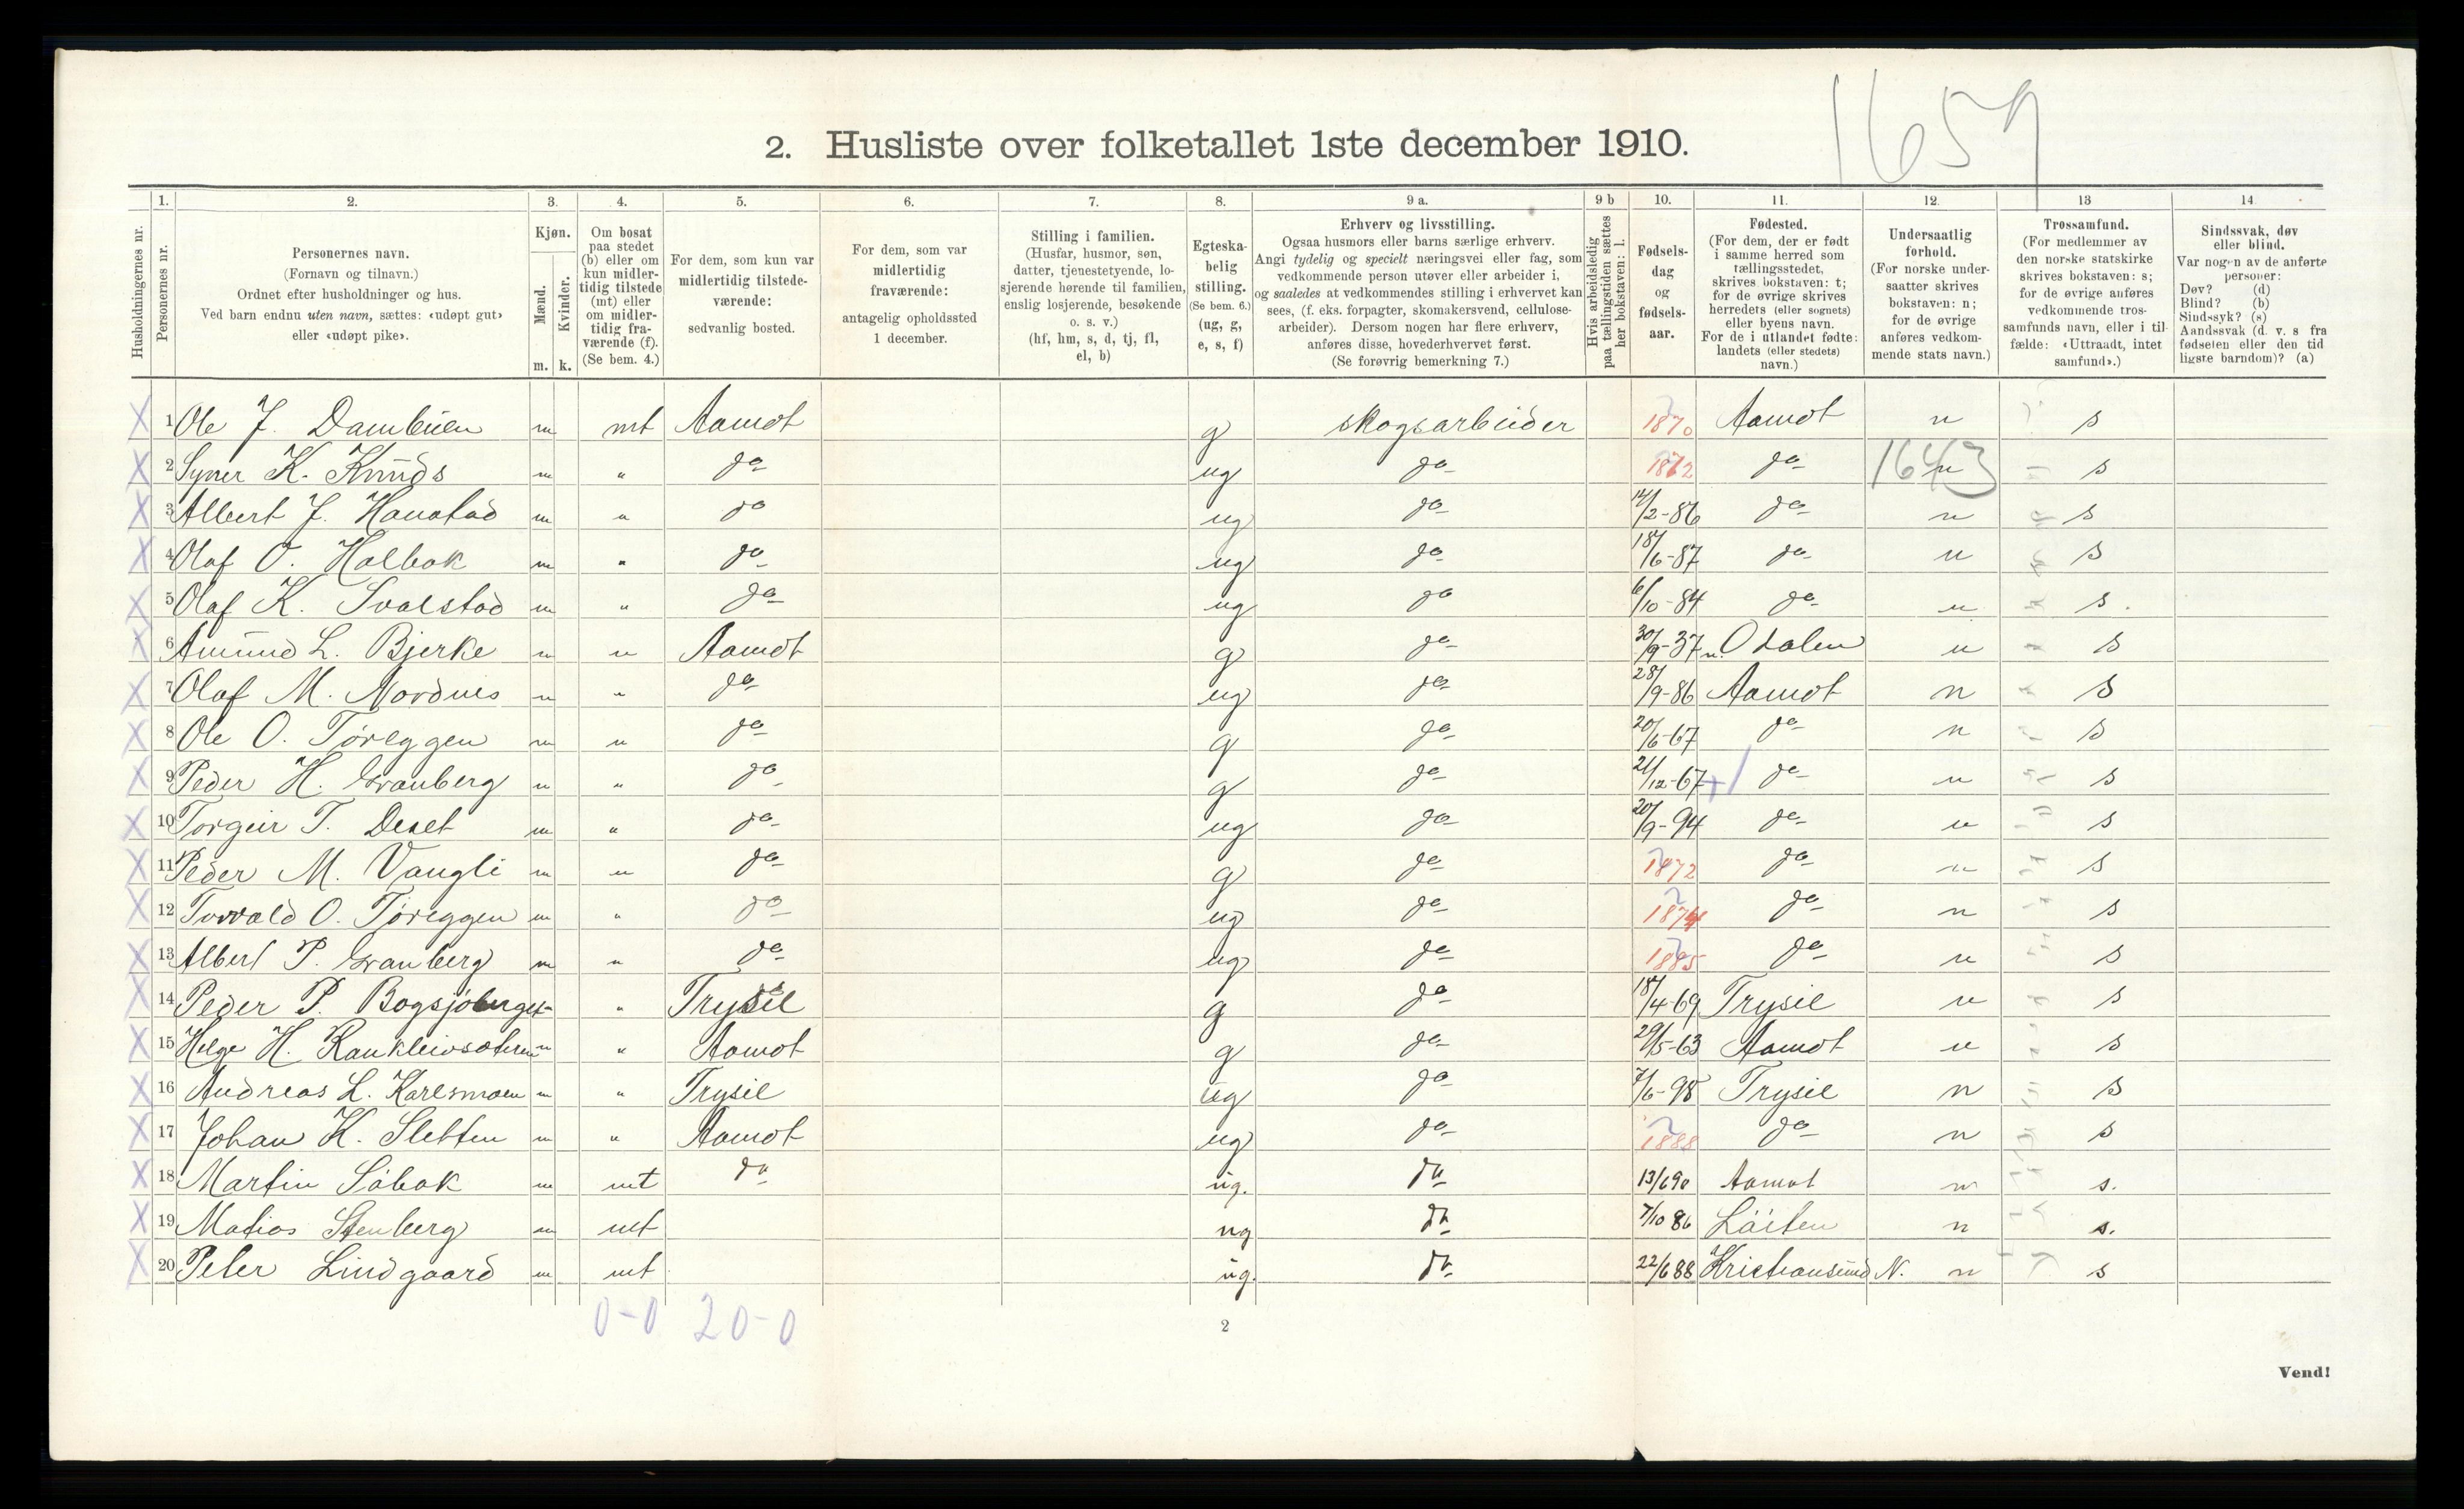 1659
2. Husliste over folketallet 1ste december 1910.
Husholdningernes nr.
1. Personernes nr.
2. Personernes navn. (Fornavn og tilnavn.) Ordnet efter husholdninger og hus. Ved barn endnu uten navn, sættes: «udøpt gut» eller «udøpt pike».
3. Kjøn. Mænd. m. Kvinder. k.
4. Om bosat paa stedet (b) eller om kun midlertidig tilstede (mt) eller om midlertidig fraværende (f). (Se bem. 4.)
5. For dem, som kun var midlertidig tilstedeværende: sedvanlig bosted.
6. For dem, som var midlertidig fraværende: antagelig opholdssted 1 december.
7. Stilling i familien. (Husfar, husmor, søn, datter, tjenestetyende, losjerende hørende til familien, enslig losjerende, besøkende o. s. v.) (hf, hm, s, d, tj, fl, el, b)
8. Egteskabelig stilling. (Se bem. 6.) (ug, g, e, s, f)
9 a. Erhverv og livsstilling. Ogsaa husmors eller barns særlige erhverv. Angi tydelig og specielt næringsvei eller fag, som vedkommende person utøver eller arbeider i, og saaledes at vedkommendes stilling i erhvervet kan sees, (f. eks. forpagter, skomakersvend, cellulosearbeider). Dersom nogen har flere erhverv, anføres disse, hovederhvervet først. (Se forøvrig bemerkning 7.)
9 b Hvis arbeidsledig paa tællingstiden sættes her bokstaven: l.
10. Fødselsdag og fødselsaar.
11. Fødested. (For dem, der er født i samme herred som tællingsstedet, skrives bokstaven: t; for de øvrige skrives herredets (eller sognets) eller byens navn. For de i utlandet fødte: landets (eller stedets) navn.)
12. Undersaatlig forhold. (For norske undersaatter skrives bokstaven: n; for de øvrige anføres vedkommende stats navn.)
13 Trossamfund. (For medlemmer av den norske statskirke skrives bokstaven: s; for de øvrige anføres vedkommende trossamfunds navn, eller i tilfælde: «Uttraadt, intet samfund».)
14 Sindssvak, døv eller blind. Var nogen av de anførte personer: Døv? (d) Blind? (b) Sindssyk? (s) Aandssvak (d. v. s fra fødselen eller den tidligste barndom)? (a)
X 1 Ole J. Dambuen m mt Aamot g skogsarbeider 1870 Aamot n s
X 2 Syver K. Knuds m " do ug do 1872 do 1643 n s
X 3 Albert J. Hanstad m " do ug do 14/2-86 do n s
X 4 Olaf O. Holbak m " do ug do 18/6-87 do n s
X 5 Olaf K. Svalstad m " do ug do 6/10-84 do n s.
X 6 Amund L. Bjerke m " Aamot g do 30/9-37 n. Odalen n s
X 7 Olaf M. Nordnes m " do ug do 28/9-86 Aamot n s
X 8 Ole O. Tøreggen m " do g do 20/6-67 do n s
X 9 Peder H. Granberg m " do g do 21/12-67 do n s
X 10 Torgeir T. Deset m " do ug do 20/9-94 do n s
X 11 Peder M. Vangli m " do g do 1872 do n s
X 12 Torvald O. Tøreggen m " do ug do 1874 do n s
X 13 Albert P. Granberg m " do ug do 1885 do n s
X 14 Peder P. Bogsjøberget " Trysil g do 18/4-69 Trysil n s
X 15 Helge H. m " Aamot g do 29/5-63 Aamot n s
X 16 Andreas L. Karlsmoen m " Trysil ug do 7/6-98 Trysil n s
X 17 Johan K. Sletten m " Aamot ug do 1888 do n s
X 18 Martin Søbak m mt do ug. do 13/6 90 Aamot n s.
X 19 Matias Stenberg m mt ug do 7/10 86 Löiten n s.
X 20 Peter Lindgaard m mt ug. do 22/6 88 Kristiansund N. n s
0-0 20-0
2
Vend!